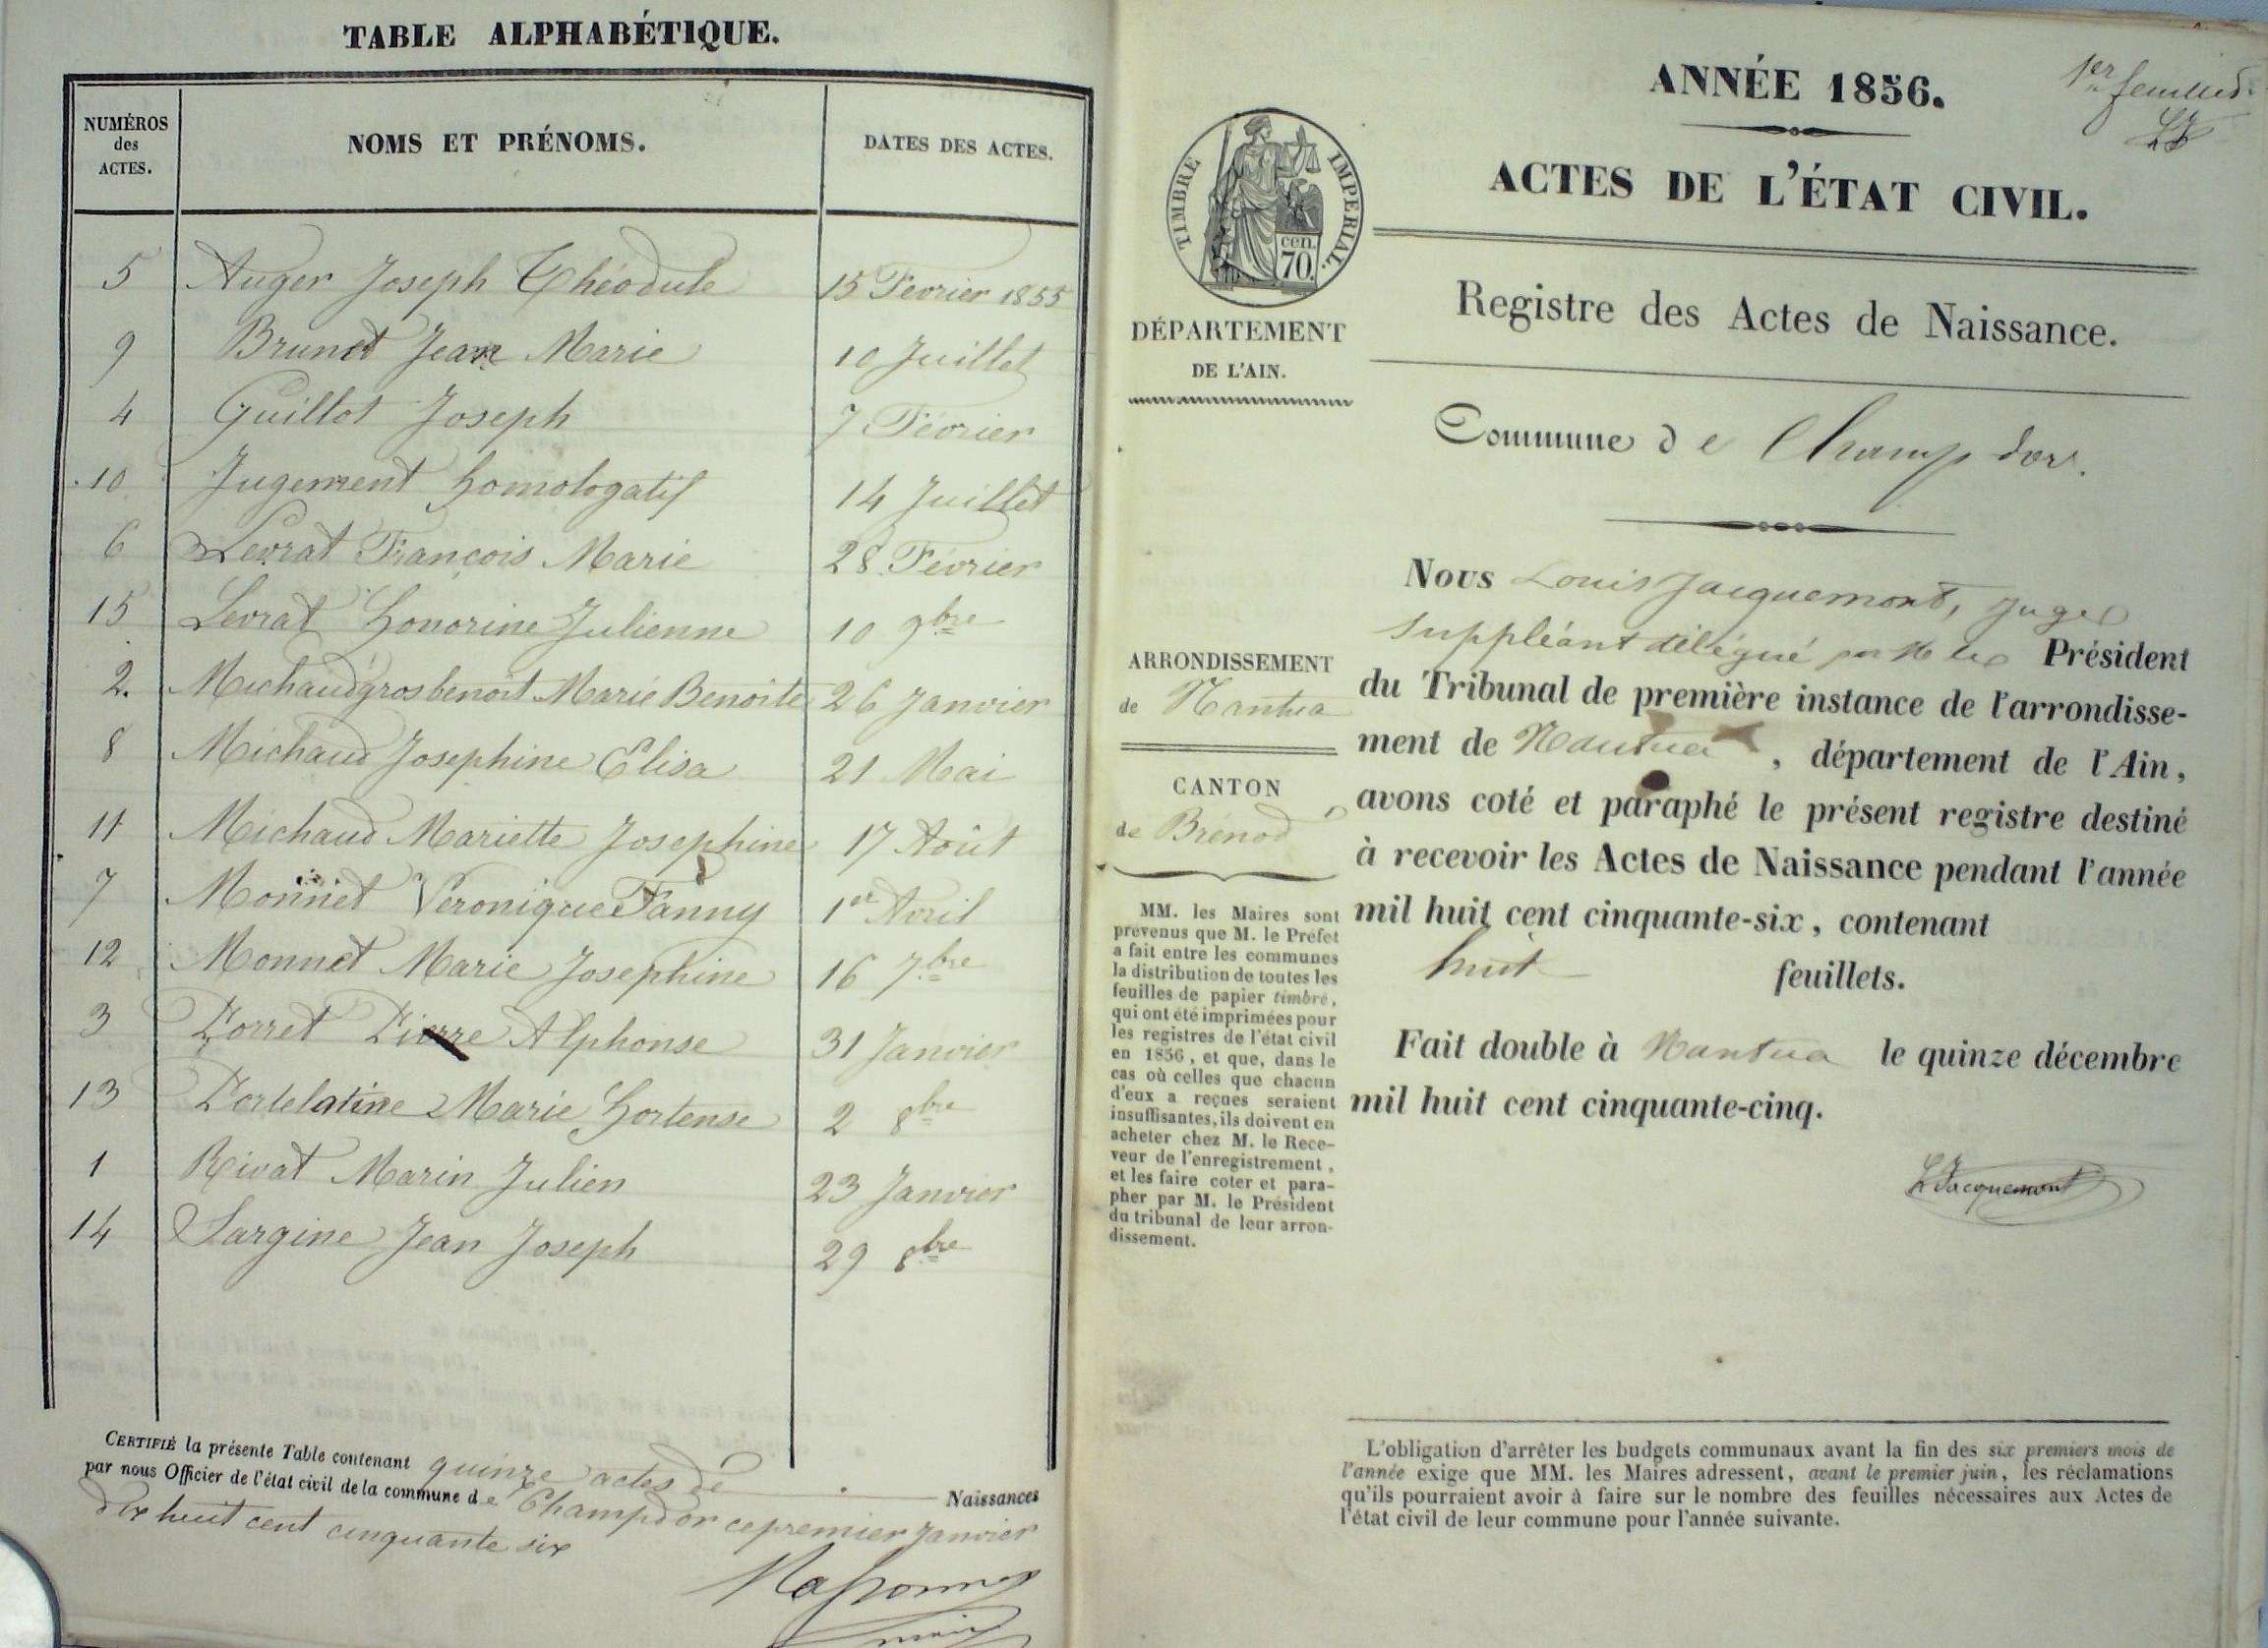 TABLE ALPHABÉTIQUE.
NUMÉROS des ACTES. NOMS ET PRÉNOMS. DATES DES ACTES.
5 Auger Joseph Théodule 15 Février 1855
9 Brunet Jean Marie 10 Juillet
4 Guillot Joseph 7 Février
10 Jugement homologatif 14 Juillet
6 Levrat François Marie 28 Février
15 Levrat Honorine Julienne 10 9bre
2. Michaud grosbenoit Marie Benoite 26 Janvier
8 Michaud Josephine Elisa 21 Mai
11 Michaud Mariette Josephine 17 Août
7 Monnet Veronique Fanny 1er Avril
12 Monnet Marie Josephine 16 7bre
3 Porret Pierre Alphonse 31 Janvier
13 Portelatine Marie Hortense 2 8bre
1 Rivat Marin Julien 23 Janvier
14 Sargine Jean Joseph 29 8bre
CERTIFIÉ la présente Table contenant quinze actes de Naissances
par nous Officier de l'état civil de la commune de Champdor ce premier Janvier
dix huit cent cinquante six
1er feuillet
ANNÉE 1856.
ACTES DE L'ÉTAT CIVIL.
TIMBRE IMPERIAL.
cen.
70.
DÉPARTEMENT
DE L'AIN.
Registre des Actes de Naissance.
Commune de Champdor.
ARRONDISSEMENT
de Nantua
CANTON
de Brénod
MM. les Maires sont
prévenus que M. le Préfet
a fait entre les communes
la distribution de toutes les
feuilles de papier timbré,
qui ont été imprimées pour
les registres de l'état civil
en 1856, et que, dans le
cas où celles que chacun
d'eux a reçues seraient
insuffisantes, ils doivent en
acheter chez M. le Rece-
veur de l'enregistrement,
et les faire coter et para-
pher par M. le Président
du tribunal de leur arron-
dissement.
Nous Louis Jacquemont, Juge
Suppléant délégué par M. le Président
du Tribunal de première instance de l'arrondisse-
ment de Nantua, département de l'Ain,
avons coté et paraphé le présent registre destiné
à recevoir les Actes de Naissance pendant l'année
mil huit cent cinquante-six, contenant
huit feuillets.
Fait double à Nantua le quinze décembre
mil huit cent cinquante-cinq.
L Jacquemont
L'obligation d'arrêter les budgets communaux avant la fin des six premiers mois de
l'année exige que MM. les Maires adressent, avant le premier juin, les réclamations
qu'ils pourraient avoir à faire sur le nombre des feuilles nécessaires aux Actes de
l'état civil de leur commune pour l'année suivante.